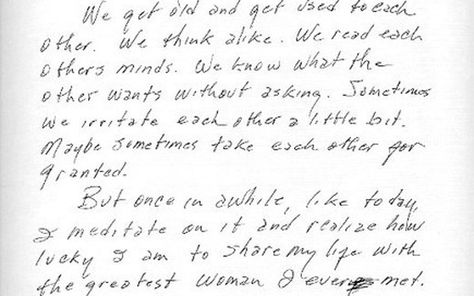 We get old and get used to each
other. We think alike. We read each
others minds. We know what the
other wants without asking. Sometimes
we irritate each other a little bit.
Maybe sometimes take each other for
granted.
But once in awhile, like today,
I meditate on it and realize how
lucky I am to share my life with
the greatest woman I ever met.